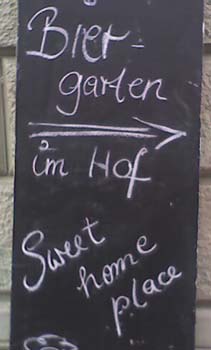 Bier-
garten
im Hof
Sweet
home
place